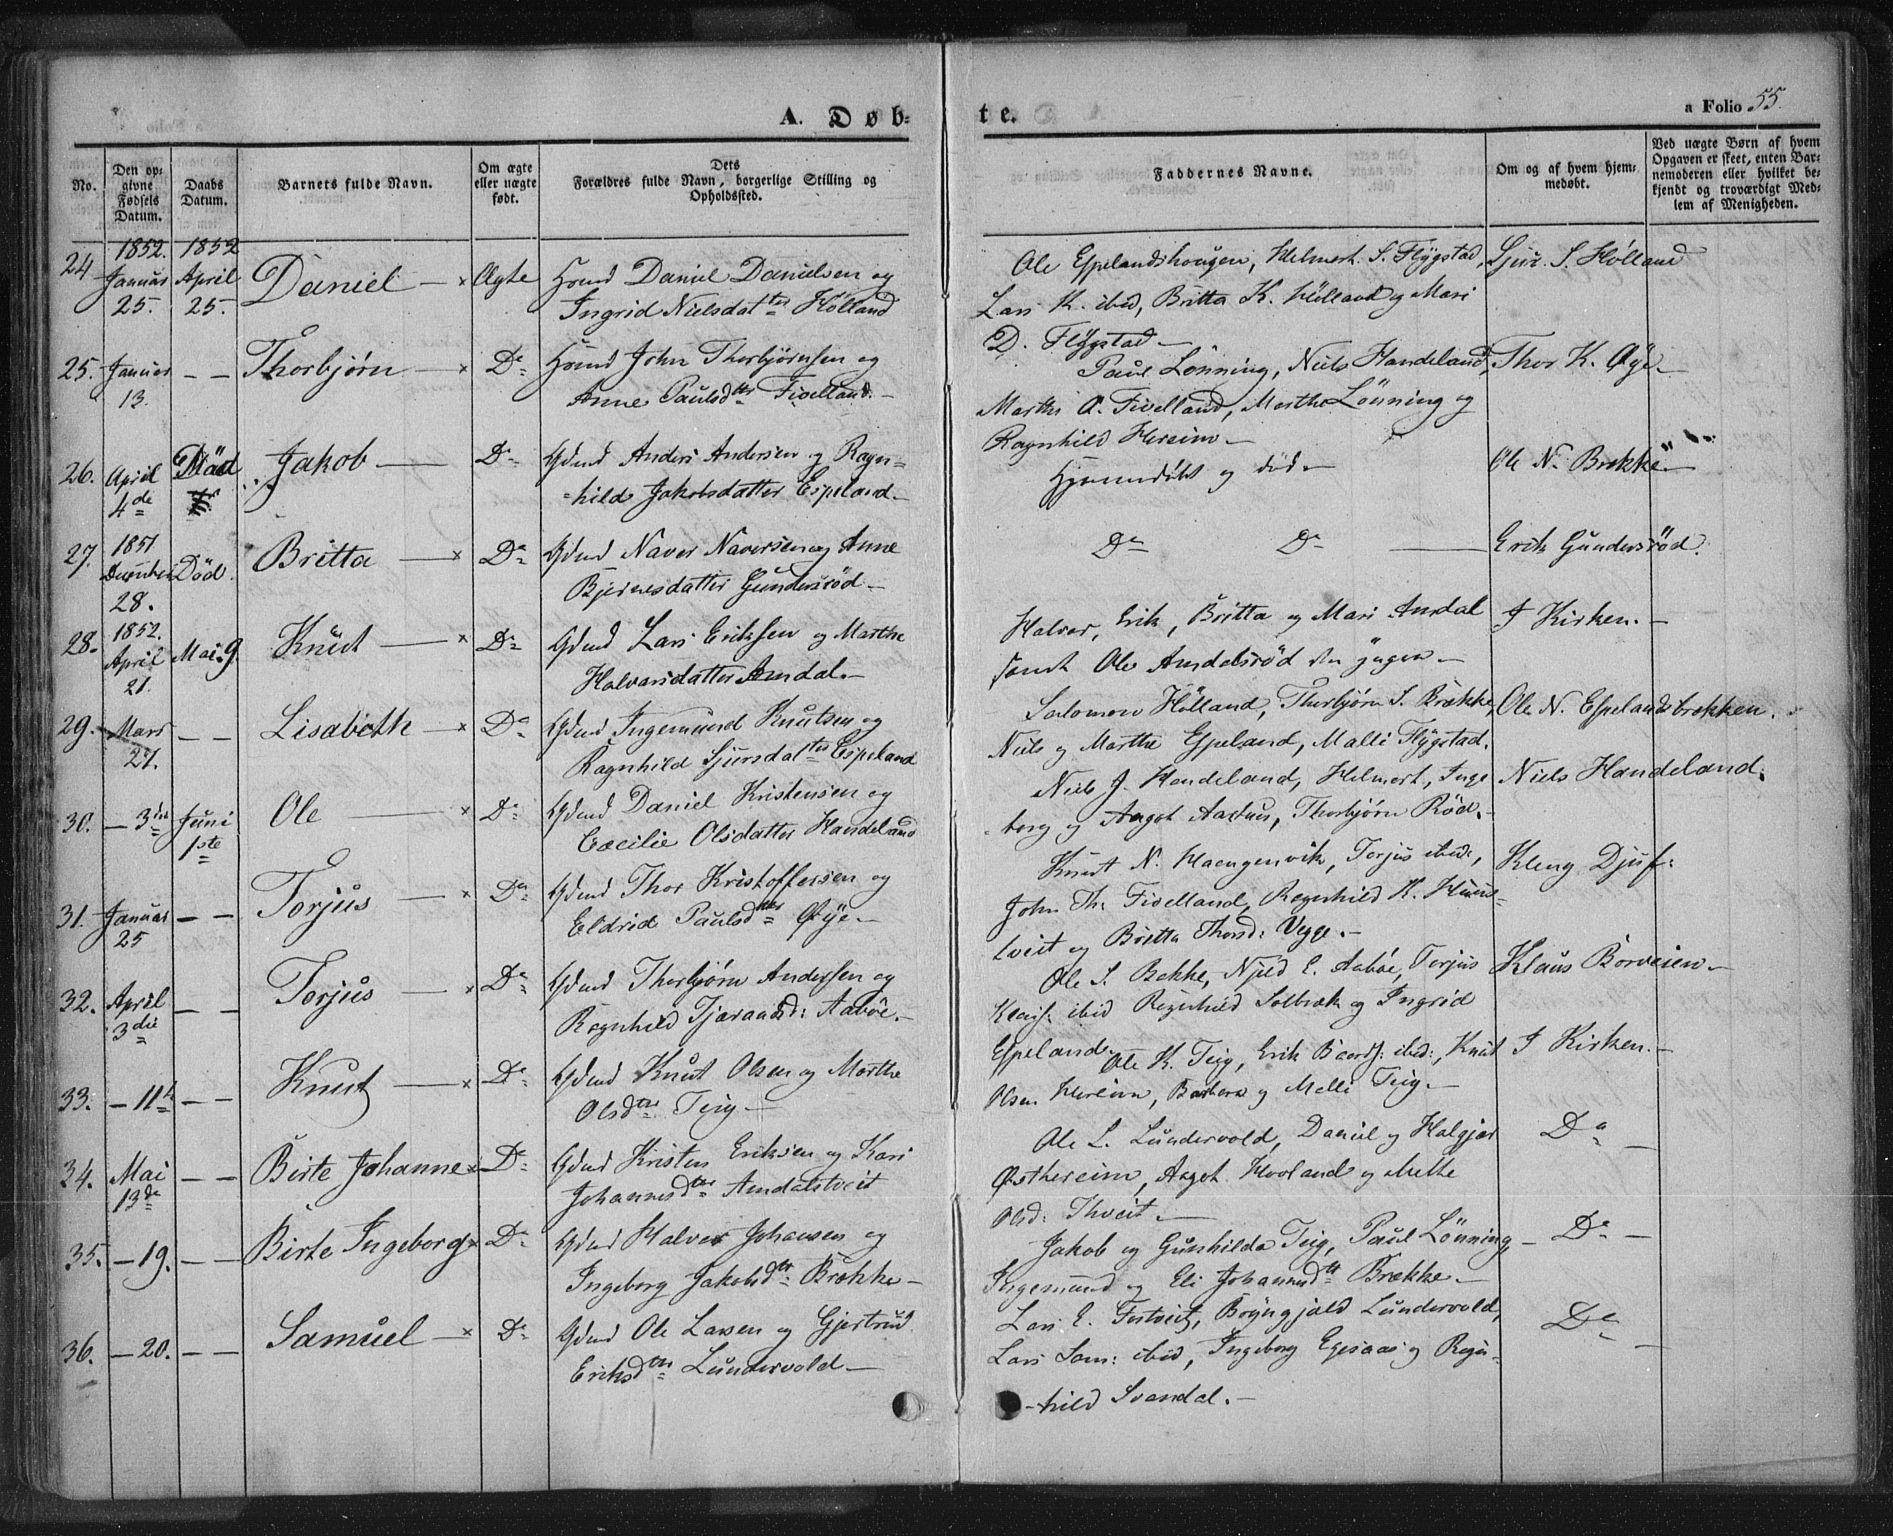 A. Døb-
te.
a Folio 55.
No.
Den op-
givne
Fødsels
Datum.
Daabs
Datum.
Barnets fulde Navn.
Om ægte
eller uægte
født.
Dets
Forældres fulde Navn, borgerlige Stilling og
Opholdssted.
Faddernes Navne.
Om og af hvem hjem-
medøbt.
Ved uægte Børn af hvem
Opgaven er skeet, enten Bar-
nemoderen eller hvilket be-
kjendt og troværdigt Med-
lem af Menigheden.
24 1852. Januar 25. 1852 April 25. Daniel — × Ægte Hsmd Daniel Danielsen og
Ingrid Nielsdatter Hölland
Ole Espelandshougen, Helmert S. Flÿgstad, Sjur S. Hölland
Lars K. ibid, Britta K. Hölland og Mari
D. Flÿgstad —
25. Januar 13. — — Thorbjørn — × Do Hsmd John Thorbjörnsen og
Anne Paulsdtter Tivelland. —
Paul Lönning, Niels Handeland, Thor K. Øÿe —
Marthe A. Tivelland, Marthe Lönning og
Ragnhild Hereim —
26. April 4de Död Jakob — Do Gdmd Anders Andersen og Ragn-
hild Jakobsdatter Espeland —
Hjemmedöbt og död — Ole N. Brekke —
27. 1851 December 28. Død. Britta — × Do Gdmd Naver Naversen og Anne
Bjernesdatter Gundersröd —
Do Do — Erik Gundersröd.
28. 1852. April 21. Mai 9 Knut — × Do Gdmd Lars Eriksen og Marthe
Halvarsdatter Amdal. —
Halvor, Erik, Britta og Mari Amdal I Kirken. —
samt Ole Amdalsröd den ÿngre —
29. Mars 27. — — Lisabeth — × Do Gdmd Ingemund Knutsen og
Ragnhild Sjursdatter Espeland
Salomon Hölland, Thorbjörn S. Brække, Ole N. Espelandsbrekken.
Niels og Marthe Espeland, Malli Flÿgstad.
30. — 3die Juni 1ste Ole — × Do Gdmd Daniel Kristensen og
Cæcilie Olsdatter Handeland
Niels J. Handeland, Helmert, Inge Niels Handeland.
borg og Angot Aartun, Thorbjörn Röd. —
31. Januar 25 — — Torjus — × Do Gdmd Thor Kristoffersen og
Eldrid Paulsdtter Øÿe —
Knut N. Haengenvik, Torjus ibid:, Kleng Djuf:
John Th: Tivelland, Regnhild K. Hune-
tveit og Britta Thorsd: Vegge. —
32. April 3die — — Torjus — × Do Gdmd Thorbjörn Andersen og
Regnhild Tjæraandsd: Aaböe. —
Ole S. Bakke, Njeld E. Aaböe, Torjus Klaus Börveien —
ibid Regnhild Solbræk og Ingrid
Espeland
33. — 11te — — Knut — × Do Gdmd Knut Olsen og Marthe
Olsdtter Teig —
Ole K. Teig, Erik Baards: ibid:, Knut I Kirken. —
Olsen Hereim, Barbera og Melli Teig —
34. Mai 13de — — Birte Johanne × Do Gdmd Kristen Eriksen og Kari
Johannesdtter Amdalstveit
Ole L. Lundervold, Daniel og Halgjær Do —
Østhereim, Asgot Hovland og Mette
Olsd: Thveit —
35. — 19. — — Birte Ingeborg × Do Gdmd Halvor Johansen og
Ingeborg Jakobsdtter Brække —
Jakob og Gunhilda Teig, Paul Lönning, — Do —
Ingemund og Eli Johannesdtter Brække —
36. — 20. — — Samuel — × Do Gdmd Ole Larsen og Gjertrud
Eriksdtter Lundervold —
Lars E. Tostveit, Brÿngjald Lundervold, Do —
Lars Sam: ibid, Ingeborg Egesaas og Regn-
hild Svandal. —